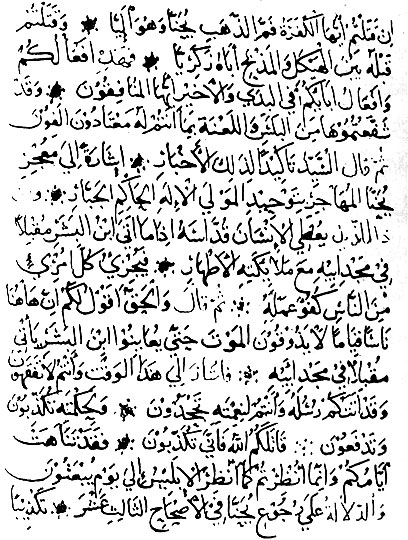 ان قلتم ايها الكفرة فم الذهب يُحنا وهو اليا وقتلتم
قبله بين الهيكل والمذبح اباه زكريا فهذه افعالكم
وافعال ابايكم في البدي والاخير ايها المنافقون وقد
شفعتموها من واللعنة بما انتم له معتادون
ثم قال السيد تاكيدًا لذلك الاخبار اشارة الى معجز
يُحنا المهاجر بتوحيد المولى الاله الحاكم الجبار
يعطي الانسان اذا ما اتى ابن البشر مقبلًا
في مجد ابيه مع ملائكته الاطهار يجزي كل امرئ
من الناس كنحو عمله ثم قال والحق اقول لكم ان هاهنا
ناسًا قيامًا لا يذوقون الموت حتى يعاينوا ابن البشر ياتي
مقبلا في مجد ابيه فاشار الى هذا الوقت وانتم لا تفقهون
وقد اتتكم رسله وانتم لنعمته تجحدون وبحكمته تكذبون
وتدفعون قاتلكم الله فانى تكذبون فقد تناهت
ايامكم وانما انتظرتم كما انتظر الابليس الى يوم يبعثون
والدلالة على رجوع يُحنا في الاصحاح الثالث عشر تكذيبًا